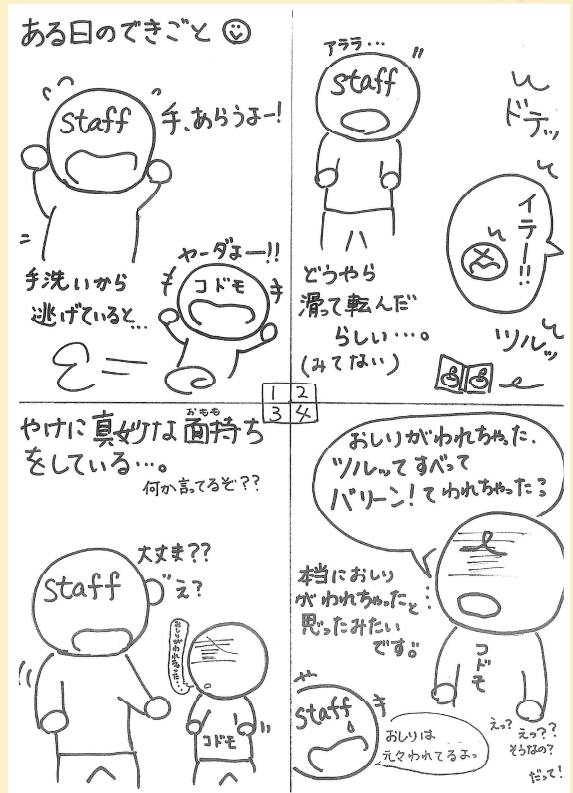 ある日のできごと
staff
手、あらうよー!
ヤーダよー!!
コドモ
手洗いから
逃げていると…
アララ・・・
staff
ドテッ
イテー!!
どうやら
滑って転んだ
らしい・・・。
(みてない)
ツルッ
1 2
3 4
やけに真妙な面持ち
おももち
をしている・・・。
何か言ってるぞ??
大丈夫??
え?
staff
おしりがわれちゃった…
コドモ
おしりがわれちゃった.
ツルッてすべって
バリーン!てわれちゃった…
本当におしり
がわれちゃったと
思ったみたい
です。
コドモ
staff
おしりは
元々われてるよっ
えっ?
えっ??
そうなの?
だって!